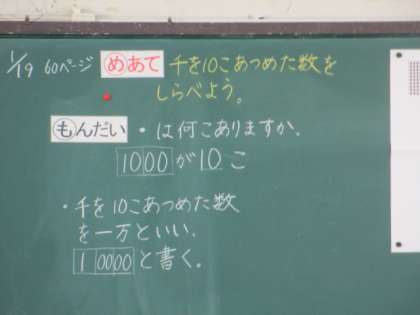 1/19 60ページ めあて 千を10こあつめた数を
しらべよう。
もんだい ・は何こありますか。
1000が10こ
・千を10こあつめた数
を一万といい、
10000と書く。